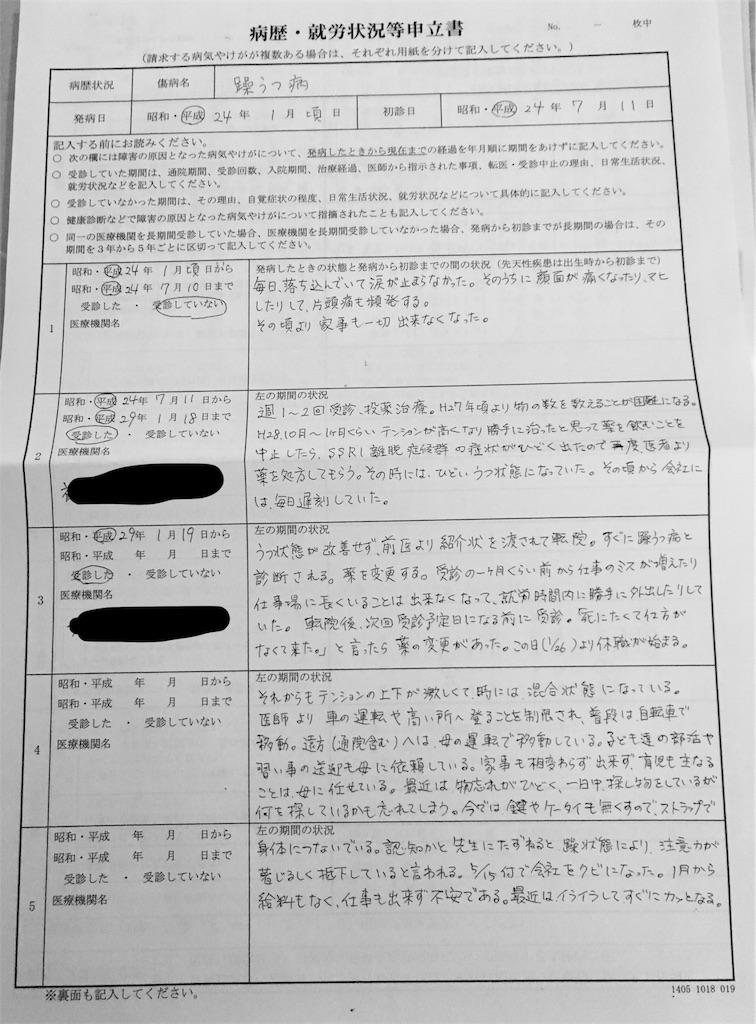 病歴・就労状況等申立書
No. － 枚中
(請求する病気やけがが複数ある場合は、それぞれ用紙を分けて記入してください。)
病歴状況 傷病名 躁うつ病
発病日 昭和・平成 24年 1月頃日 初診日 昭和・平成 24年 7月 11日
記入する前にお読みください。
○ 次の欄には障害の原因となった病気やけがについて、発病したときから現在までの経過を年月順に期間をあけずに記入してください。
○ 受診していた期間は、通院期間、受診回数、入院期間、治療経過、医師から指示された事項、転医・受診中止の理由、日常生活状況、
就労状況などを記入してください。
○ 受診していなかった期間は、その理由、自覚症状の程度、日常生活状況、就労状況などについて具体的に記入してください。
○ 健康診断などで障害の原因となった病気やけがについて指摘されたことも記入してください。
○ 同一の医療機関を長期間受診していた場合、医療機関を長期間受診していなかった場合、発病から初診までが長期間の場合は、その
期間を3年から5年ごとに区切って記入してください。
1
昭和・平成24年 1月頃日から
昭和・平成24年 7月10日まで
受診した ・ 受診していない
医療機関名
発病したときの状態と発病から初診までの間の状況(先天性疾患は出生時から初診まで)
毎日、落ち込んでいて涙が止まらなかった。そのうちに顔面が痛くなったり、マヒ
したりして、片頭痛も頻発する。
その頃より家事も一切出来なくなった。
2
昭和・平成24年7月11日から
昭和・平成29年1月18日まで
受診した ・ 受診していない
医療機関名
左の期間の状況
週1～2回受診、投薬治療。H27年頃より物の数を数えることが困難になる。
H28,10日～1ヶ月くらいテンションが高くなり勝手に治ったと思って薬を飲むことを
中止したら、SSRI離脱症候群の症状がひどく出たので再度、医者より
薬を処方してもらう。その時には、ひどいうつ状態になっていた。その頃から会社に
は、毎日遅刻していた。
3
昭和・平成29年 1月19日から
昭和・平成 年 月 日まで
受診した ・ 受診していない
医療機関名
左の期間の状況
うつ状態が改善せず、前医より紹介状を渡されて転院。すぐに躁うつ病と
診断される。薬を変更する。受診の一ヶ月くらい前から仕事のミスが増えたり
仕事場に長くいることは出来なくなって、就労時間内に勝手に外出したりして
いた。転院後、次回受診予定日になる前に受診。「死にたくて仕方が
なくて来た。」と言ったら薬の変更があった。この日(1/26)より休職が始まる。
4
昭和・平成 年 月 日から
昭和・平成 年 月 日まで
受診した ・ 受診していない
医療機関名
左の期間の状況
それからもテンションの上下が激しくて、時には、混合状態になっている。
医師より車の運転や高い所へ登ることを制限され、普段は自転車で
移動。遠方(通院含む)へは、母の運転で移動している。子ども達の部活や
習い事の送迎も母に依頼している。家事も相変わらず出来ず、育児も主なる
ことは、母に任せている。最近は物忘れがひどく、一日中、探し物をしているが
何を探しているかも忘れてしまう。今では鍵やケータイも無くすので、ストラップで
5
昭和・平成 年 月 日から
昭和・平成 年 月 日まで
受診した ・ 受診していない
医療機関名
左の期間の状況
身体につないでいる。認知かと先生にたずねると躁状態により、注意力が
著じるしく抵下していると言われる。5/15付で会社をクビになった。1月から
給料もなく、仕事も出来ず不安である。最近はイライラしてすぐにカッとなる。
※裏面も記入してください。
1405 1018 019